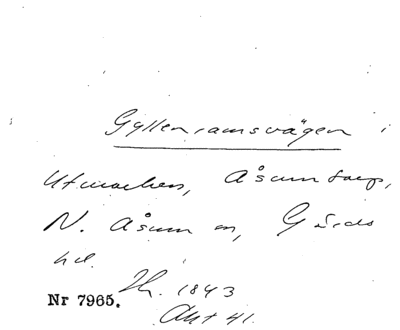 Gyllenramsvägen i
Utmarken, Åsumtorp,
N. Åsum sn, Gärds
hd.
Nr 7965. Th. 1843
Akt 41.